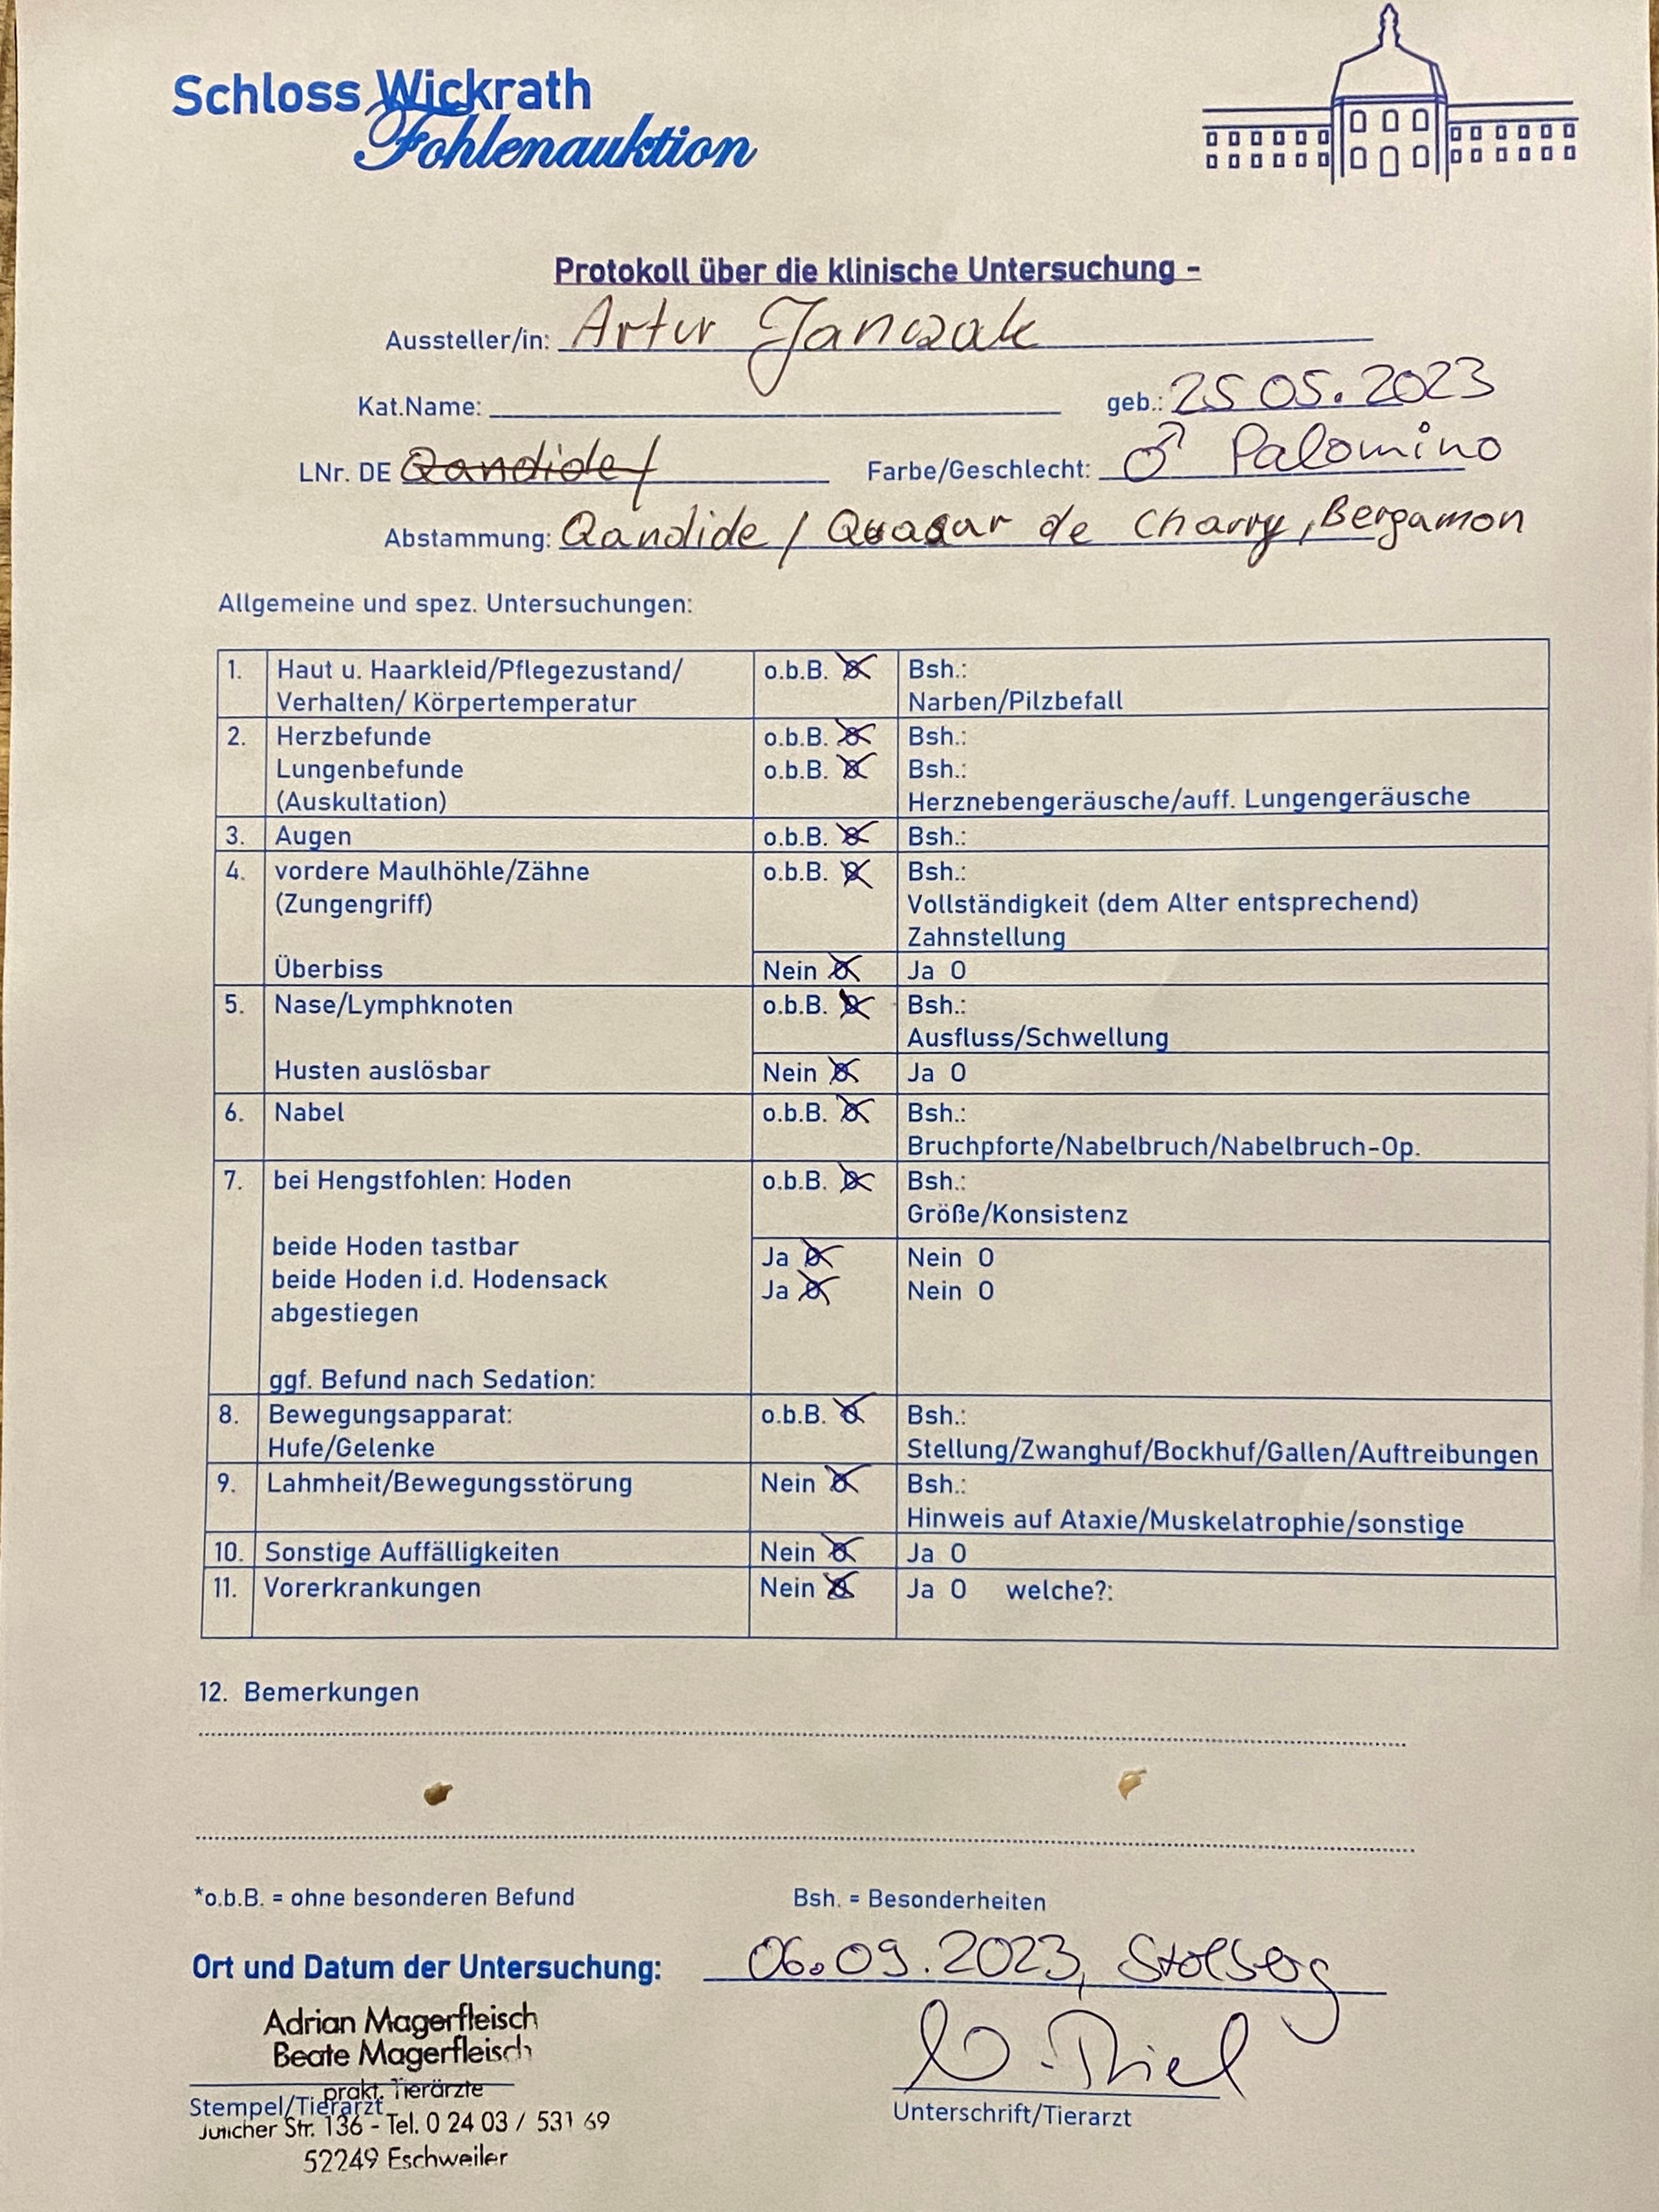 Schloss Wickrath
Fohlenauktion
Protokoll über die klinische Untersuchung -
Aussteller/in: Artur Janczak
Kat.Name: geb.: 25 05. 2023
LNr. DE Qandide / Farbe/Geschlecht: ♂ Palomino
Abstammung: Qandide / Quasar de Charry, Bergamon
Allgemeine und spez. Untersuchungen:
1. Haut u. Haarkleid/Pflegezustand/ o.b.B. Bsh.:
Verhalten/ Körpertemperatur Narben/Pilzbefall
2. Herzbefunde o.b.B. Bsh.:
Lungenbefunde o.b.B. Bsh.:
(Auskultation) Herznebengeräusche/auff. Lungengeräusche
3. Augen o.b.B. Bsh.:
4. vordere Maulhöhle/Zähne o.b.B. Bsh.:
(Zungengriff) Vollständigkeit (dem Alter entsprechend)
Zahnstellung
Überbiss Nein Ja 0
5. Nase/Lymphknoten o.b.B. Bsh.:
Ausfluss/Schwellung
Husten auslösbar Nein Ja 0
6. Nabel o.b.B. Bsh.:
Bruchpforte/Nabelbruch/Nabelbruch-Op.
7. bei Hengstfohlen: Hoden o.b.B. Bsh.:
Größe/Konsistenz
beide Hoden tastbar Ja Nein 0
beide Hoden i.d. Hodensack Ja Nein 0
abgestiegen
ggf. Befund nach Sedation:
8. Bewegungsapparat: o.b.B. Bsh.:
Hufe/Gelenke Stellung/Zwanghuf/Bockhuf/Gallen/Auftreibungen
9. Lahmheit/Bewegungsstörung Nein Bsh.:
Hinweis auf Ataxie/Muskelatrophie/sonstige
10. Sonstige Auffälligkeiten Nein Ja 0
11. Vorerkrankungen Nein Ja 0 welche?:
12. Bemerkungen
*o.b.B. = ohne besonderen Befund Bsh. = Besonderheiten
Ort und Datum der Untersuchung: 06.09.2023, Stolberg
Adrian Magerfleisch
Beate Magerfleisch
prakt. Tierärzte
Stempel/Tierarzt
Jülicher Str. 136 - Tel. 0 24 03 / 531 69
52249 Eschweiler
Thiel
Unterschrift/Tierarzt